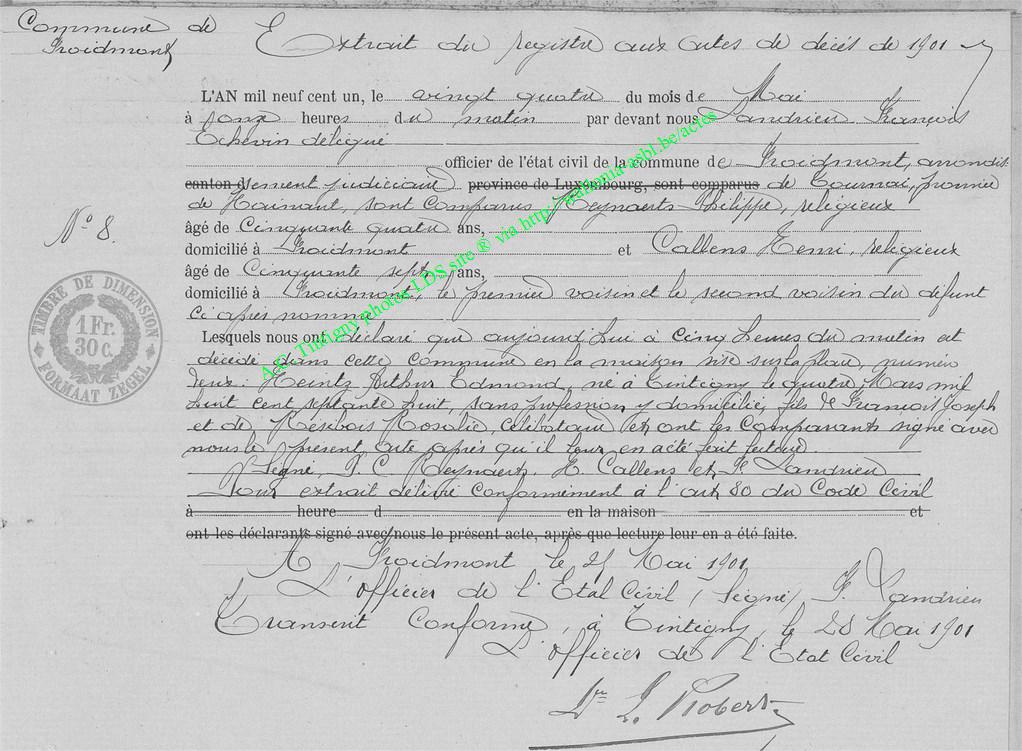 Commune de
Froidmont
Extrait du registre aux actes de décés de 1901
L'AN mil neuf cent un, le vingt quatre du mois de Mai
à onze heures du matin par devant nous Landrieu François
Echevin délégué
officier de l'état civil de la commune de Froidmont, arrondis
canton d sement judiciaire province de Luxembourg, sont comparus de Tournai, province
de Hainaut, sont Comparus Reynaerts Philippe, religieux
N° 8.
âgé de Cinquante quatre ans,
domicilié à Froidmont et Callens Henri, religieux
âgé de Cinquante sept ans,
domicilié à Froidmont, le premier voisin et le second voisin du défunt
ci après nommé
TIMBRE DE DIMENSION
1 Fr.
30 c.
FORMAAT ZEGEL
Lesquels nous ont déclaré que aujourd'hui à Cinq heures du matin est
décédé dans cette Commune en la maison sise sur la place, numéro
deux: Heintz Arthur Edmond, né à Tintigny le quatre Mars mil
huit cent septante huit, sans profession y domicilié, fils de François Joseph
et de Résibois Rosalie, célibataire et ont les Comparants signé avec
nous le présent acte après qu'il leur en a été fait lecture.
Signé, P. C. Reynaerts, H. Callens et F. Landrieu
Pour extrait délivré Conformément à l'art 80 du Code Civil
à heure d en la maison et
ont les déclarants signé avec nous le présent acte, après que lecture leur en a été faite.
A Froidmont le 25 Mai 1901
L'officier de l'Etat Civil (Signé) F. Landrieu
Transcrit Conforme, à Tintigny, le 28 Mai 1901
L'officier de l'Etat Civil
Dr L. Robert
A.C. Tintigny Photos LDS site ® via http://wallonia-asbl.be/actes